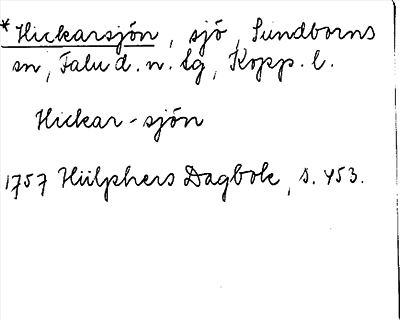 *Hickarsjön, sjö, Sundborns
sn, Falu d. n. lg, Kopp. l.
Hickar-sjön
1757 Hülphers Dagbok, s. 453.